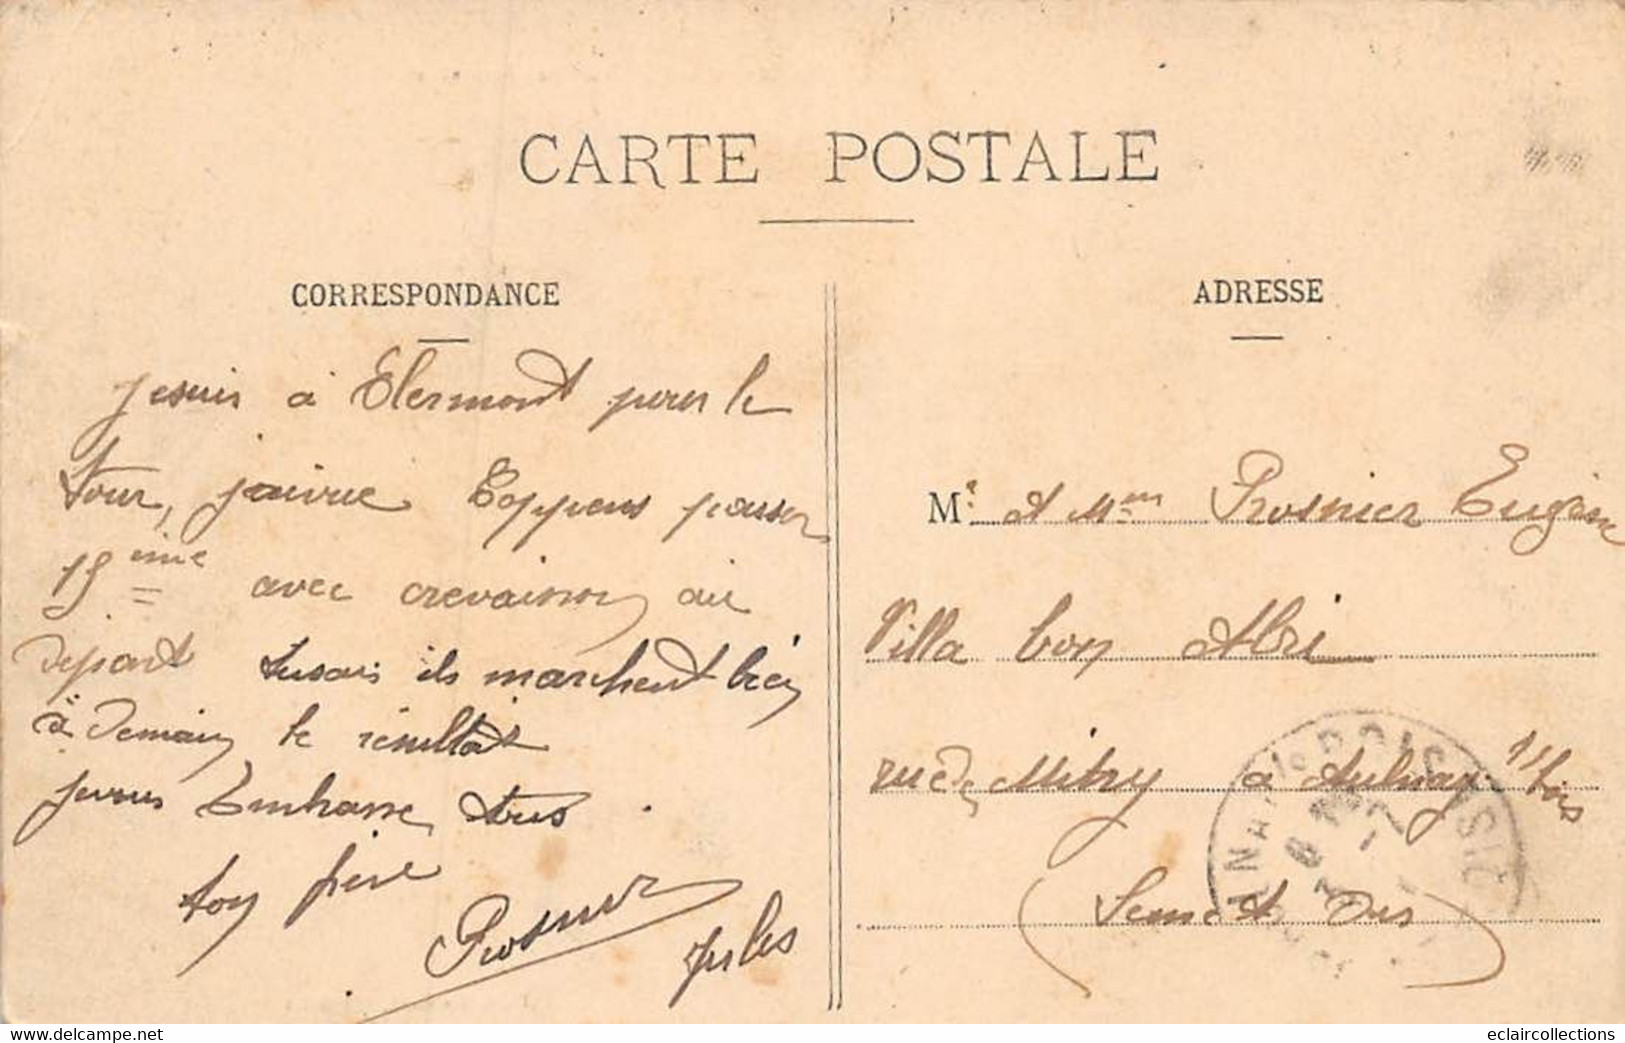 CARTE POSTALE
CORRESPONDANCE
ADRESSE
Jesuis à Clermont pour le
tour, jaivue Coppens passer
15eme avec crevaison au
départ tusais ils marchent bien
à Demain le résultat
jevous Embrasse tous
ton frère
Prosnier
Jules
Mr et Mme Prosnier Eugène
Villa bon Abri
rue de Mitry à Aulnay s/s bois
(Seine et Oise)
AULNAY-S-BOIS
delcampe.net
eclaircollections